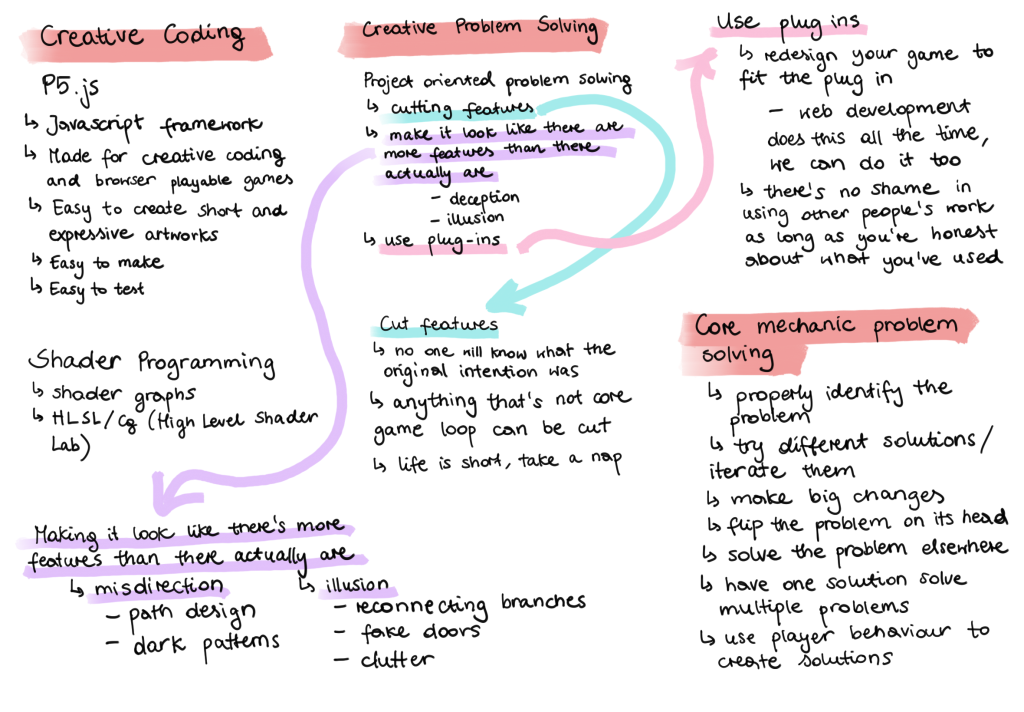 Creative Coding
P5.js
↳ Javascript framework
↳ Made for creative coding
and browser playable games
↳ Easy to create short and
expressive artworks
↳ Easy to make
↳ Easy to test
Shader Programming
↳ shader graphs
↳ HLSL/Cg (High Level Shader
Lab)
Creative Problem Solving
Project oriented problem solving
↳ cutting features
↳ make it look like there are
more features than there
actually are
- deception
- illusion
↳ use plug-ins
Cut features
↳ no one will know what the
original intention was
↳ anything that's not core
game loop can be cut
↳ life is short, take a nap
Making it look like there's more
features than there actually are
↳ misdirection
- path design
- dark patterns
↳ illusion
- reconnecting branches
- fake doors
- clutter
Use plug ins
↳ redesign your game to
fit the plug in
- web development
does this all the time,
we can do it too
↳ there's no shame in
using other people's work
as long as you're honest
about what you've used
Core mechanic problem
solving
↳ properly identify the
problem
↳ try different solutions/
iterate them
↳ make big changes
↳ flip the problem on its head
↳ solve the problem elsewhere
↳ have one solution solve
multiple problems
↳ use player behaviour to
create solutions